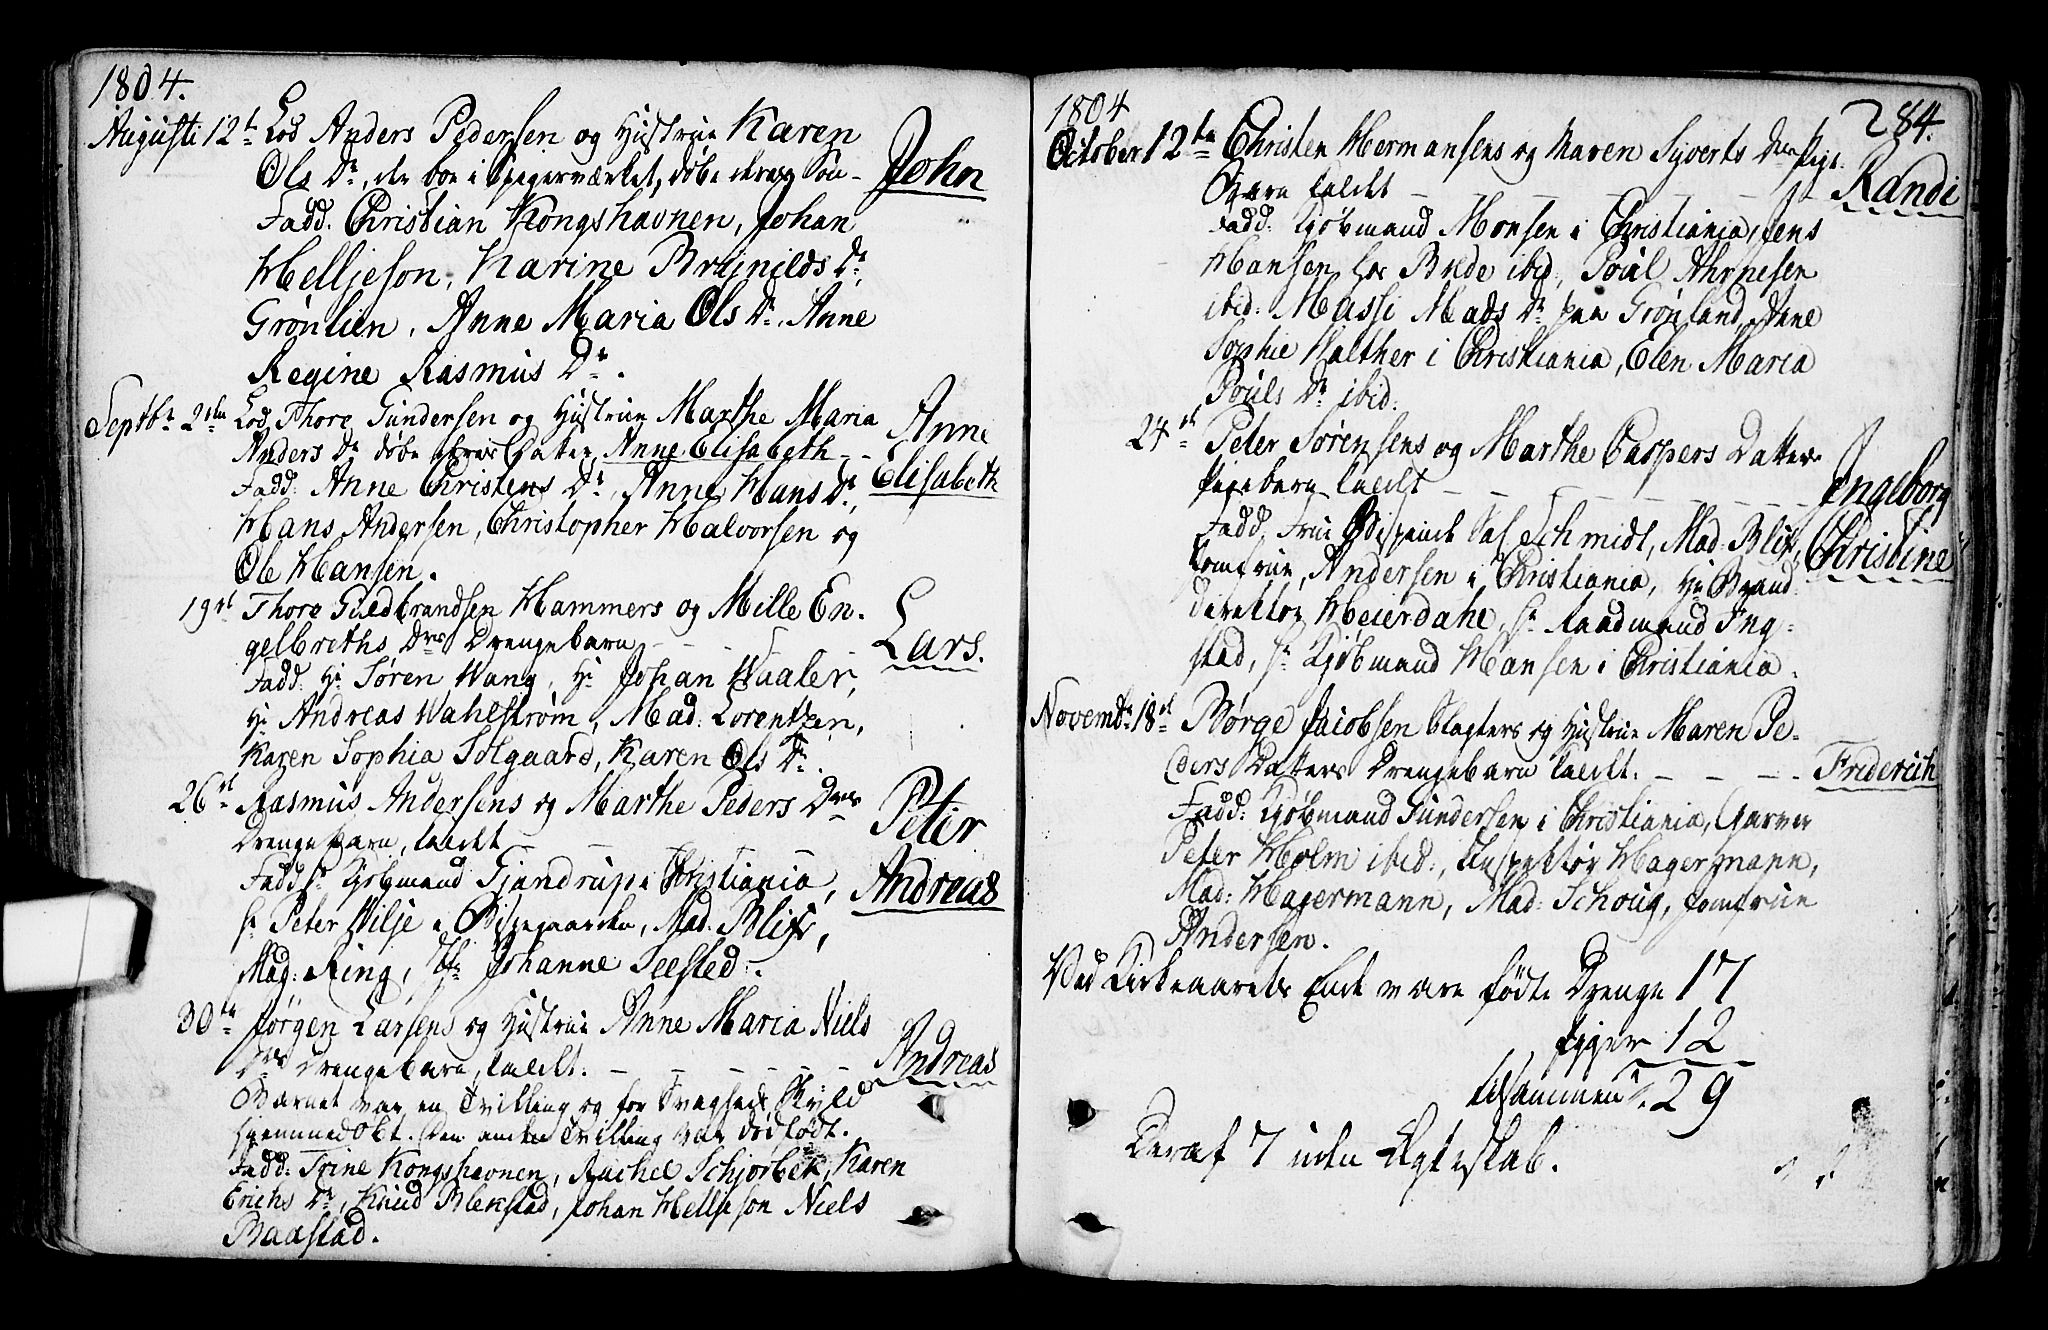 1804.
Augusti 12te Lod Anders Pedersen og Hustrue Karen
Ols Dr., der boe i Spigerværket, døbe deres Søn - John
Fadd: Christian Kongshavnen, Johan
Helljeson, Karine Brynilds Dr.
Grönlien, Anne Maria Ols Dr., Anne
Regine Rasmus Dr.
Septbr. 2den Lod Thore Gundersen og Hustrue Marthe Maria
Anders Dr. døbe deres Datter Anne Elisabeth - - Anne
Fadd: Anne Christens Dr., Anne Hans Dr., Elisabeth
Hans Andersen, Christopher Halvorsen og
Ole Hansen.
19de Thore Guldbrandsen Hammers og Mille En-
gelbreths Drs Drengebarn - - - Lars.
Fadd: Hr. Søren Wang, Hr. Johan Waaler,
Hr. Andreas Wahlstrøm, Mad: Lorentzen,
Karen Sophia Solgaard, Karen Ols Dr.
26de Rasmus Andersens og Marthe Peders Drs
Drengebarn, kaldt - - - Peter
Fadd: Hr. Kjøbmand Tjandrup i Christiania, Andreas
Hr. Peter Wilje i Bispegaarden, Mad: Blix,
Mad: Ring, Jfr. Johanne Seested.
30te Jørgen Larsens og Hustrue Anne Maria Niels
Drs Drengebarn, kaldt. - - - - - Andreas
Barnet var en Tvilling og for Svagheds Skyld
hjemmedøbt. Den anden Tvilling var dødfødt.
Fadd: Trine Kongshavnen, Rachel Schjorbek, Karen
Erichs Dr., Knud Blekstad, Johan Helljeson Niels
Baastad.
1804 284.
October 12te Christen Hermansens og Maren Syverts Drs Pige-
Barn kaldt - - - - - Randi
Fadd: Kjøbmand Monsen i Christiania, Jens
Hansen hos Brede ibid:, Poul Ahrnesen
ibid: Massi Mads Dr. paa Grønland, Anne
Sophie Walther i Christiania, Elen Maria
Pouls Dr. ibid:
24de Peter Sørensens og Marthe Caspers Datters
Pigebarn kaldt - - - - - - Ingeborg
Fadd: Frue Bispinde Sal. Schmidt, Mad: Blix, Christine
Jomfrue Andersen i Christiania, Hr. Brand-
direktør Heierdahl, Hr. Raadmand Ing-
stad, Hr. Kjøbmand Hansen i Christiania.
Novembr. 18de Børge Jacobsen Slagters og Hustrue Maren Pe-
ders Datters Drengebarn kaldt. - - - - Friderich
Fadd: Kjøbmand Gundersen i Christiania, Garver
Peter Holm ibid:, Inspektør Hagermann,
Mad: Hagermann, Mad: Schoug, Jomfrue
Andersen.
Ved Kirkeaarets Ende vare fødte Drenge 17
Piger 12
tilsammen 29
Deraf 7 uden Ægteskab.